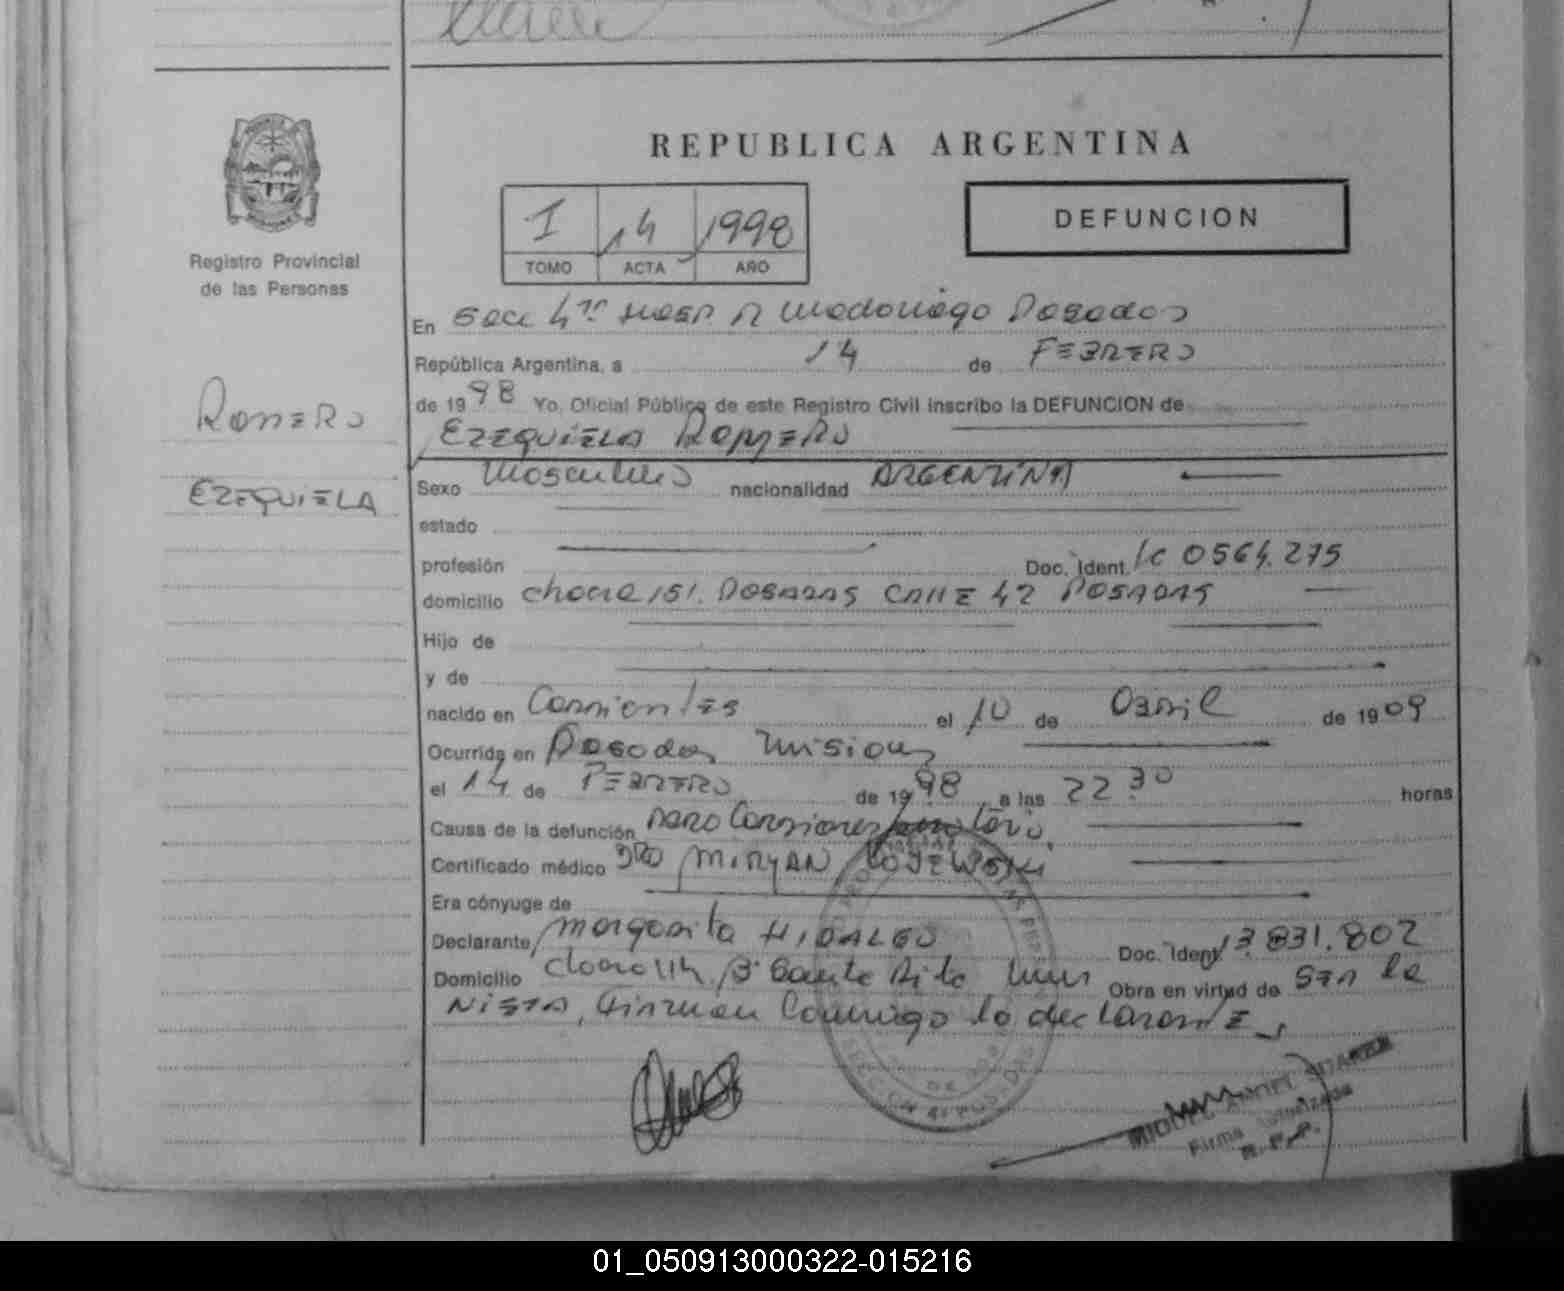 REPUBLICA ARGENTINA
I 14 1998
TOMO ACTA AÑO
DEFUNCION
Registro Provincial
de las Personas
ROMERO
EZEQUIELA
En Secc 4ta Posadas
República Argentina, a 14 de FEBRERO
de 1998 Yo, Oficial Público de este Registro Civil inscribo la DEFUNCION de
EZEQUIELA ROMERO
Sexo Masculino nacionalidad ARGENTINA
estado
profesión Doc. Ident. LC 0564.275
domicilio chacra 151. POSADAS CALLE 42 POSADAS
Hijo de
y de
nacido en Corrientes el 10 de abril de 1909
Ocurrida en Posadas Misiones
el 14 de FEBRERO de 1998 a las 22 30 horas
Causa de la defunción PARO Cardiorespiratorio
Certificado médico DRA MIRYAN
Era cónyuge de
Declarante Margarita HIDALGO Doc. Ident. 13.831.802
Domicilio Bº Santa Rita Obra en virtud de SER la
NIETA, Firman Conmigo la declarante
MIGUEL ANGEL
Firma Autorizada
R.P.P.
01_050913000322-015216